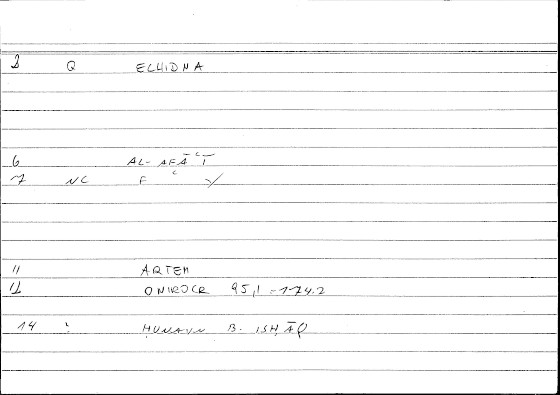 2 Q ECHIDNA
6 AL-AFĀʿĪ
7 NC F
11 ARTEM
12 ONIROCR 95,1-174.2
14 : ḤUNAYN B. ISḤĀQ